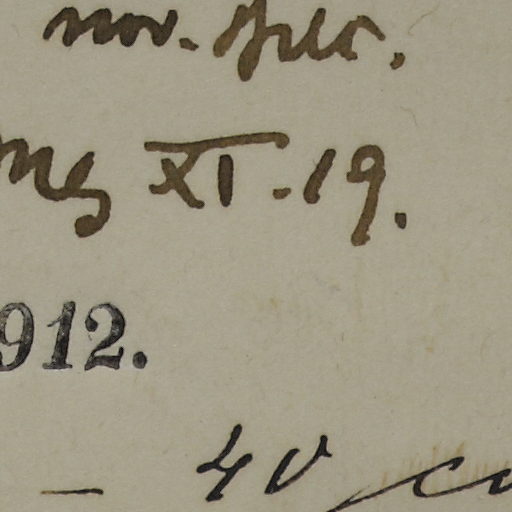 nov. spec.
XI-19.
912.
— 40 c